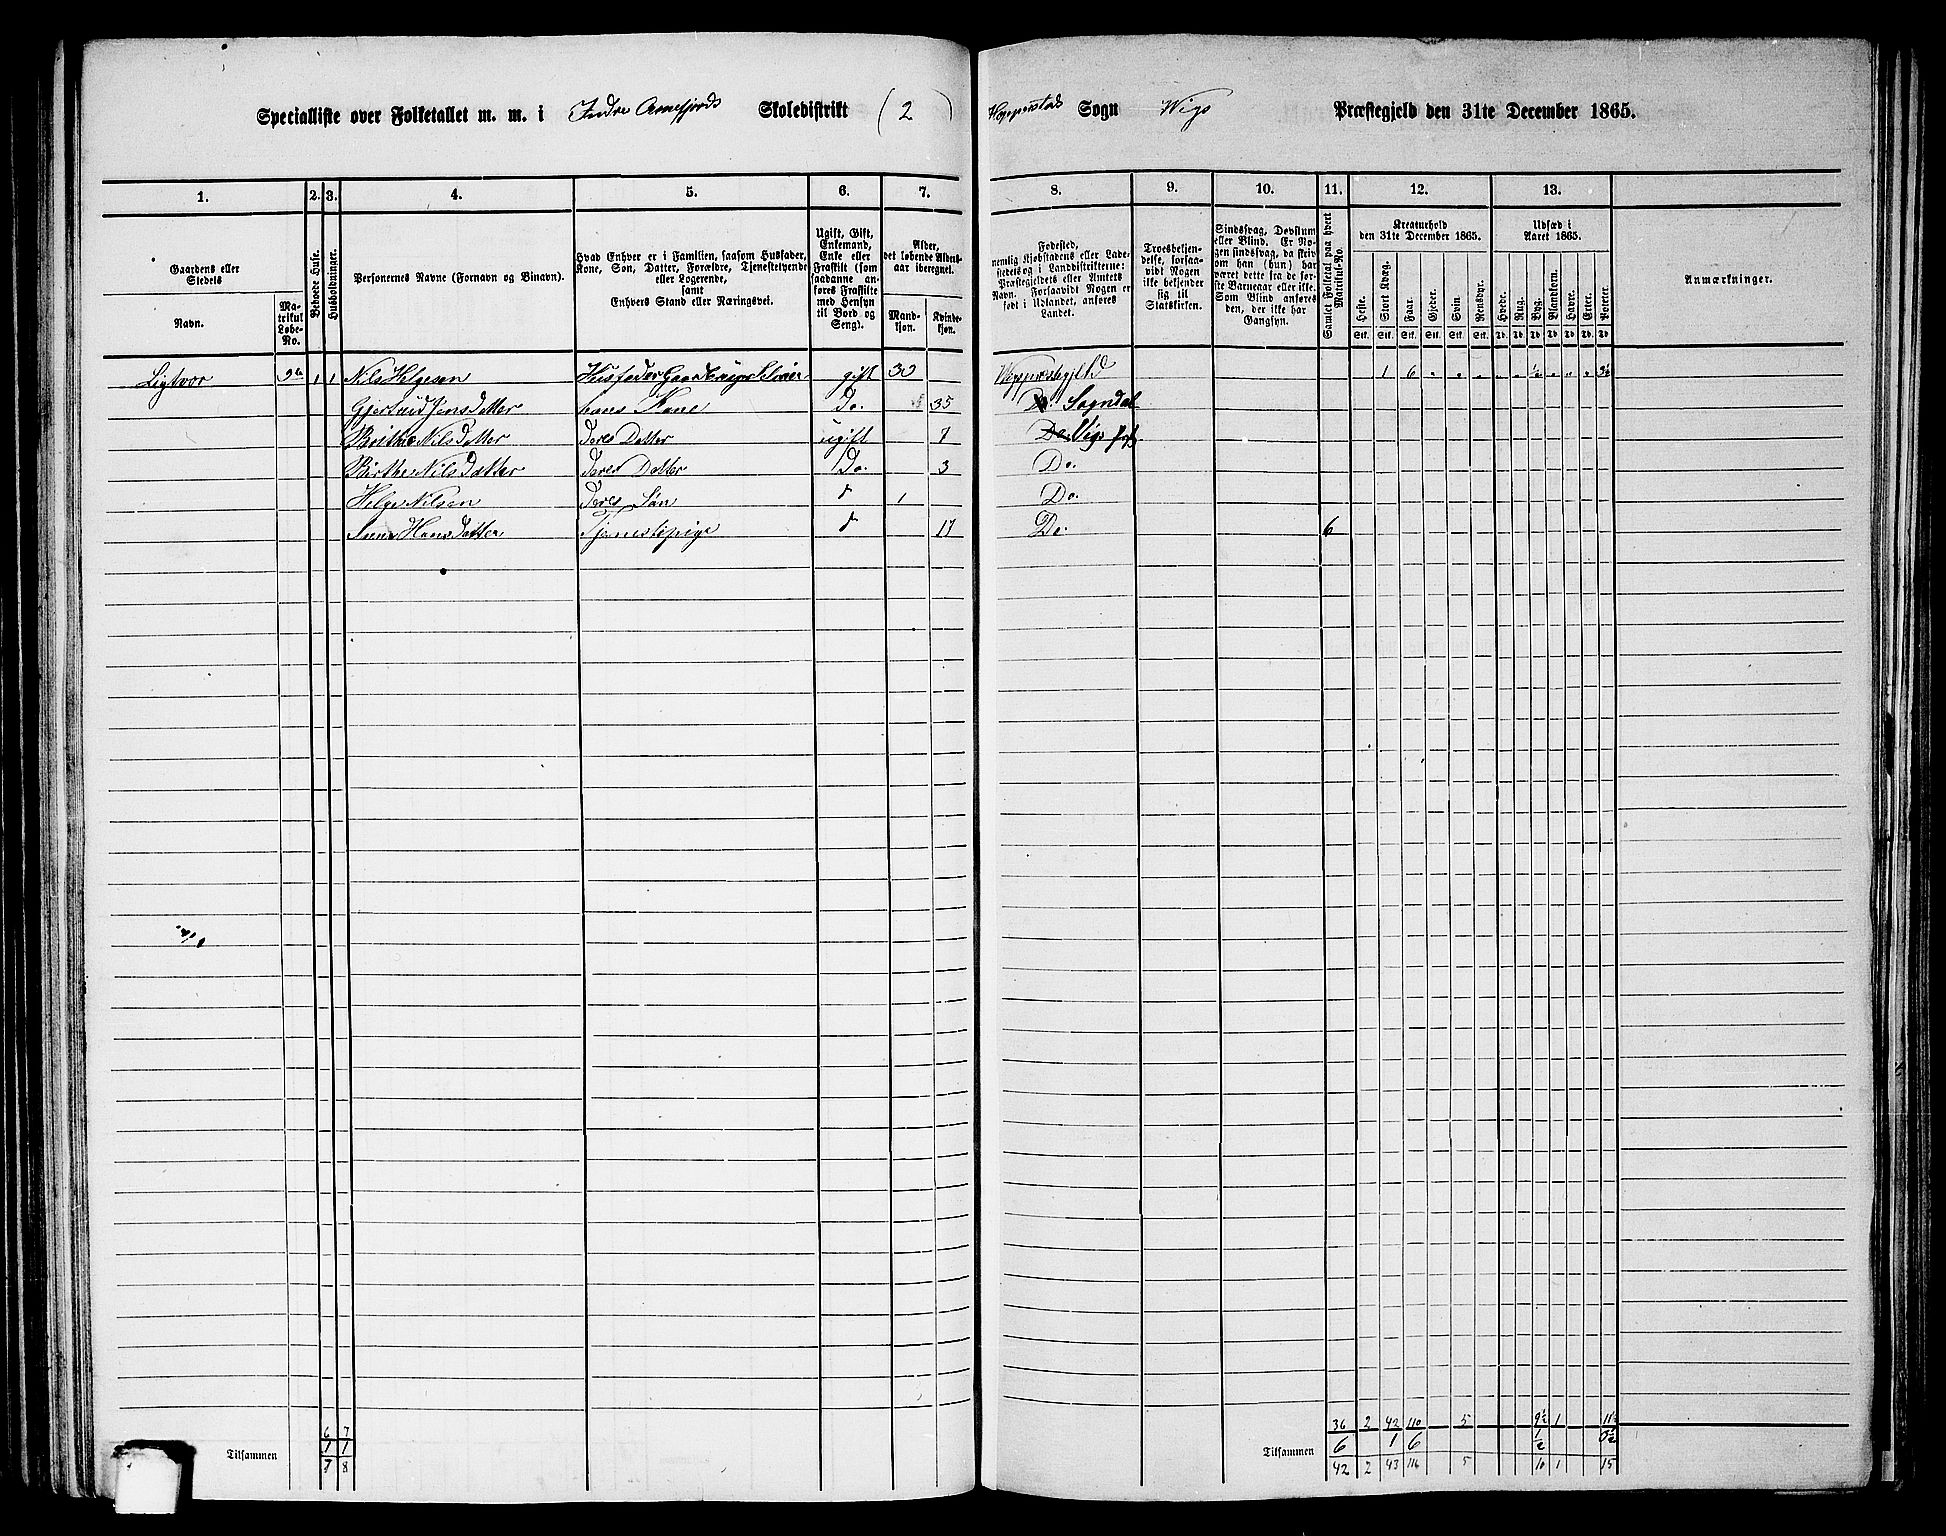 Specialliste over Folketallet m. m. i Indre Arnefjords Skoledistrikt (2) Hopperstad Sogn Wigs Præstegjeld den 31te December 1865.
1. 2. 3. 4. 5. 6. 7. 8. 9. 10. 11. 12. 13.
Gaardens eller Stedets
Navn.
Matrikul Løbe-No.
Beboede Huse.
Husholdninger.
Personernes Navne (Fornavn og Binavn).
Hvad Enhver er i Familien, saasom Husfader, Kone, Søn, Datter, Forældre, Tjenestetyende eller Logerende, samt Enhvers Stand eller Næringsvei.
Ugift, Gift, Enkemand, Enke eller Fraskilt (som saadanne anføres Fraskilte med Hensyn til Bord og Seng).
Alder, det løbende Aldersaar iberegnet.
Mandkjøn.
Kvindekjøn.
Fødested, nemlig Kjøbstadens eller Ladestedets og i Landdistrikterne: Præstegjeldets eller Amtets Navn. Forsaavidt Nogen er født i Udlandet, anføres Landet.
Troesbekjendelse, forsaavidt Nogen ikke bekjender sig til Statskirken.
Sindssvag, Døvstum eller Blind. Er Nogen sindssvag, da skrives om han (hun) har været dette fra de første Barneaar eller ikke. Som Blind anføres den, der ikke har Gangsyn.
Samlet Folketal paa hvert Matrikul-No.
Kreaturhold den 31te December 1865.
Heste. Stort Kvæg. Faar. Gjeder. Svin. Rensdyr.
Udsæd i Aaret 1865.
Hvede. Rug. Byg. Blandkorn. Havre. Erter. Poteter.
Anmærkninger.
Ligtvor 1 1 Nils Helgesen gift 30 1 6 " " " " " ½ " " " 3½
Gjertrud Jensdatter hans Kone Do. 35 Do. Sogndal
Birthe Nilsdatter deres Datter ugift 7 Do. Vigs
Birthe Nilsdatter deres Datter Do. 3 Do.
Helge Nilsen deres Søn d 1 Do.
Hansdatter Tjenestepige d 17 Do. 6
6 7 36 2 42 110 5 9½ 1 11½
Tilsammen 1 1 Tilsammen 6 1 6 ½ 3½
7 8 42 2 43 116 5 10 1 15